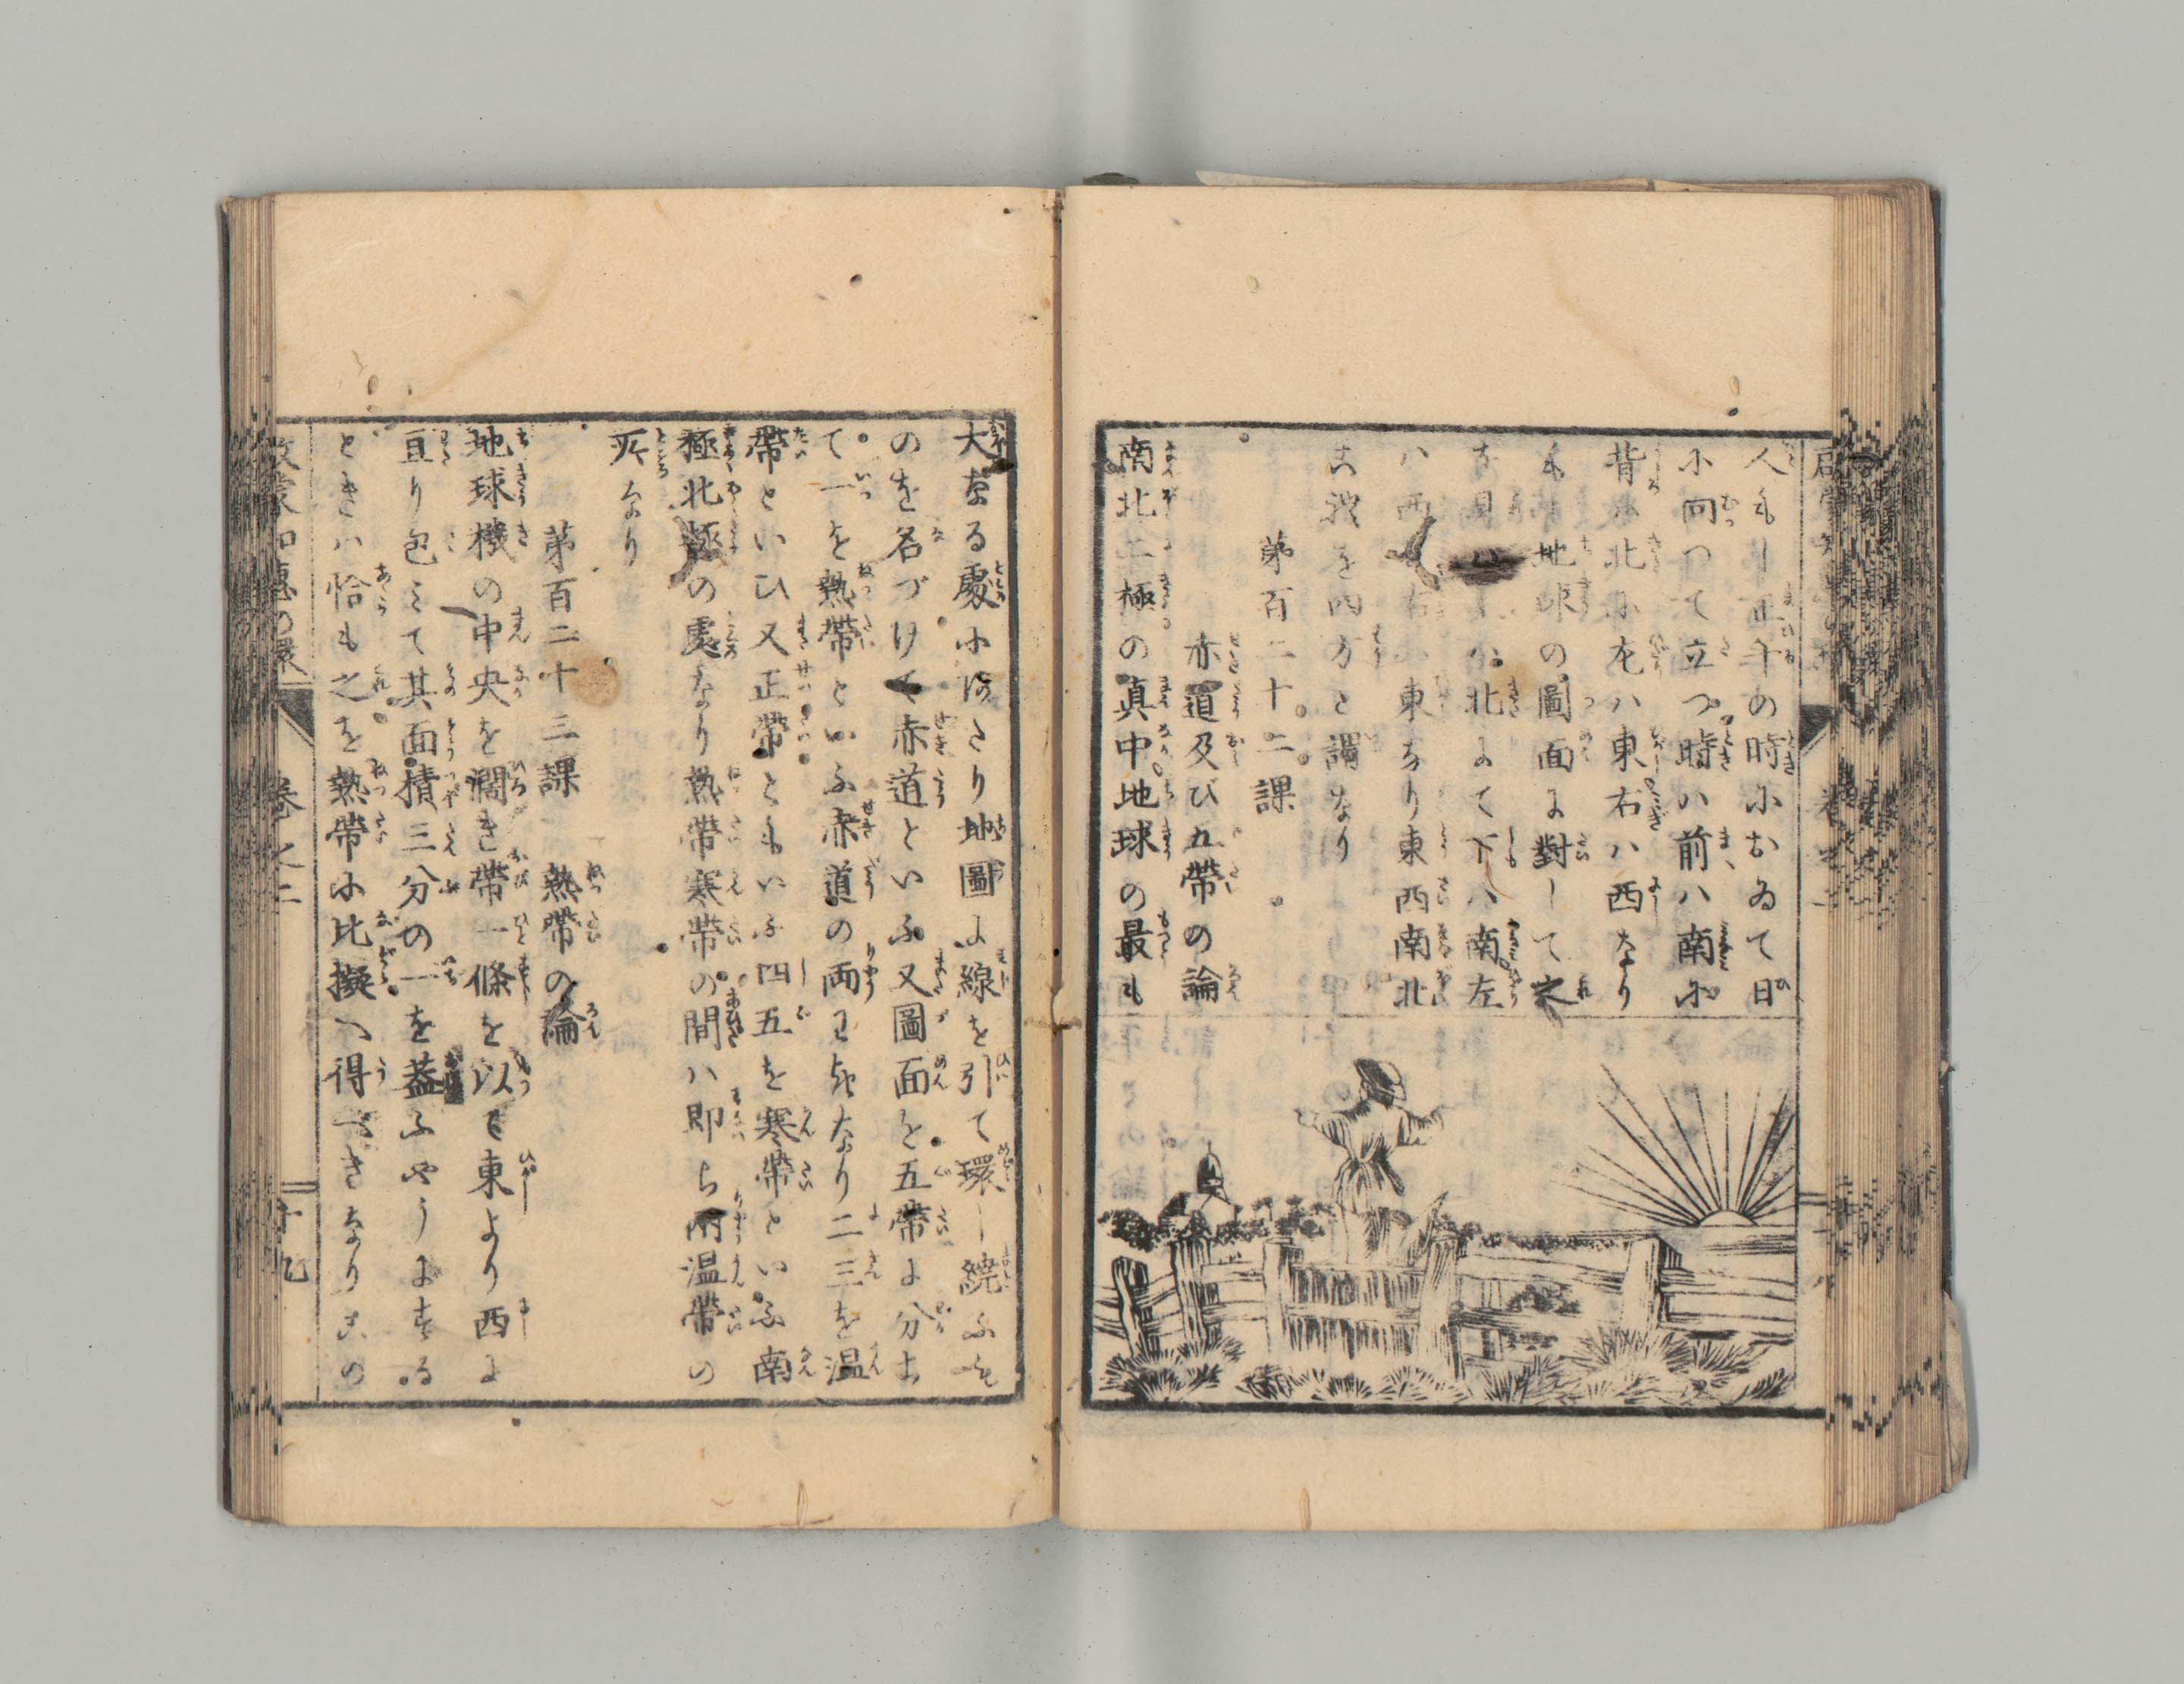 人もし正午の時におゐて日
に向つて立つ時ハ前ハ南に
背ハ北に左ハ東右ハ西なり
も地球の圖面に對して之
を見れバ上ハ北にて下ハ南左
ハ西右ハ東なり東西南北
これを四方と謂なり
第百二十二課
赤道及び五帶の論
南北二極の真中地球の最も
大なる處にあたり地圖に線を引て環し繞ふも
のを名づけて赤道といふ又圖面を五帶に分ち
て一を熱帶といふ赤道の両わきなり二三を温
帶といひ又正帶ともいふ四五を寒帶といふ南
極北極の處なり熱帶寒帶の間ハ即ち両温帶の
所なり
第百二十三課 熱帶の論
地球機の中央を濶き帶一條を以て東より西に
亘り包ミて其面積三分の一を蓋ふやうにする
ときハ恰も之を熱帶に比擬へ得べきなりこの
啓蒙知恵の環 卷之二 十九